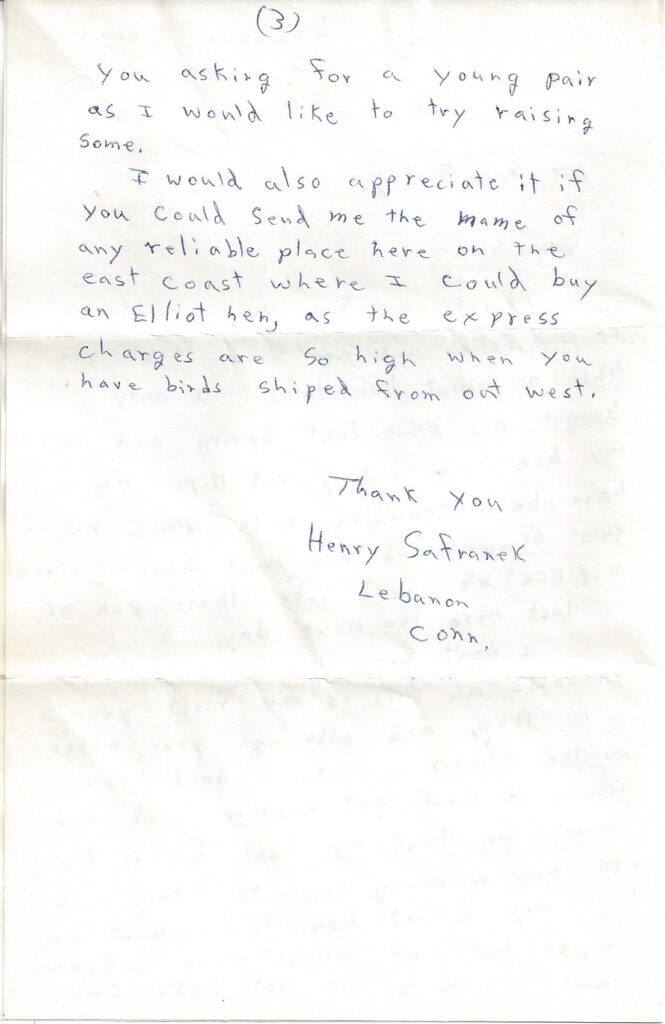 (3)
You asking for a young pair
as I would like to try raising
some.
I would also appreciate it if
you could send me the mame of
any reliable place here on the
east coast where I could buy
an Elliot hen, as the express
charges are so high when you
have birds shiped from out west.
Thank you
Henry Safranek
Lebanon
Conn.